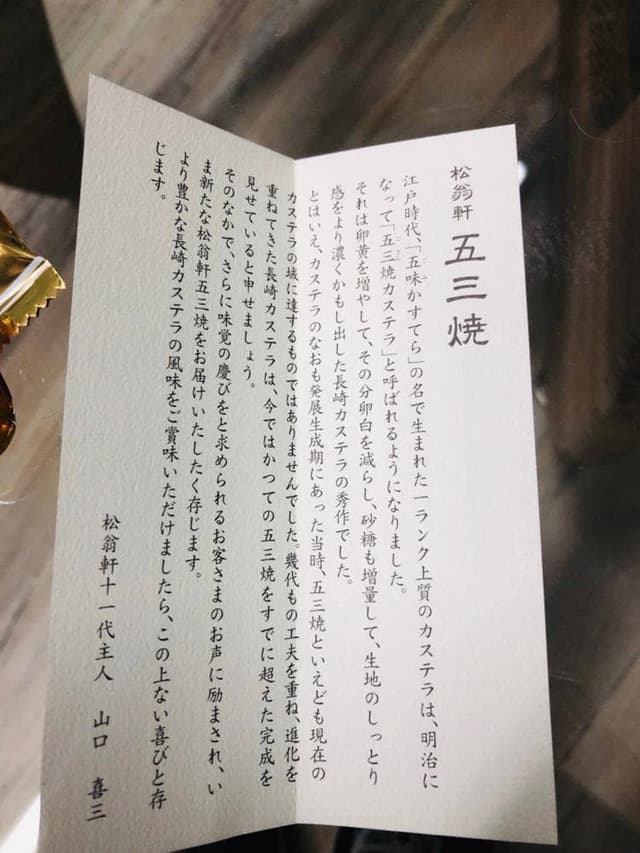 松翁軒 五三焼
江戸時代、「五味かすてら」の名で生まれた一ランク上質のカステラは、明治に
なって「五三焼カステラ」と呼ばれるようになりました。
それは卵黄を増やして、その分卵白を減らし、砂糖も増量して、生地のしっとり
感をより濃くかもし出した長崎カステラの秀作でした。
とはいえ、カステラのなおも発展生成期にあった当時、五三焼といえども現在の
カステラの域に達するものではありませんでした。幾代もの工夫を重ね、進化を
重ねてきた長崎カステラは、今ではかつての五三焼をすでに超えた完成を
見せていると申せましょう。
そのなかで、さらに味覚の慶びをと求められるお客さまのお声に励まされ、い
ま新たな松翁軒五三焼をお届けいたしたく存じます。
より豊かな長崎カステラの風味をご賞味いただけましたら、この上ない喜びと存
じます。
松翁軒十一代主人 山口 喜三